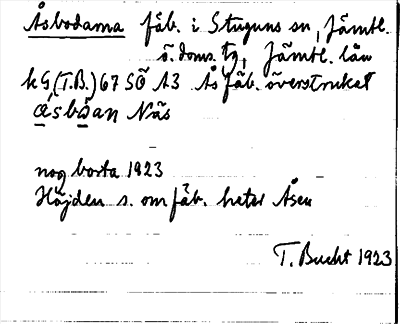 Åsbodarna fäb. i Stuguns sn, Jämtl.
ö. doms. tg, Jämtl. län
kG (T.B.) 67 SÖ A3 Ås fäb. överstruket
åsbo̱an Näs
nog borta 1923
Höjden s. om fäb. heter Åsen
T. Bucht 1923